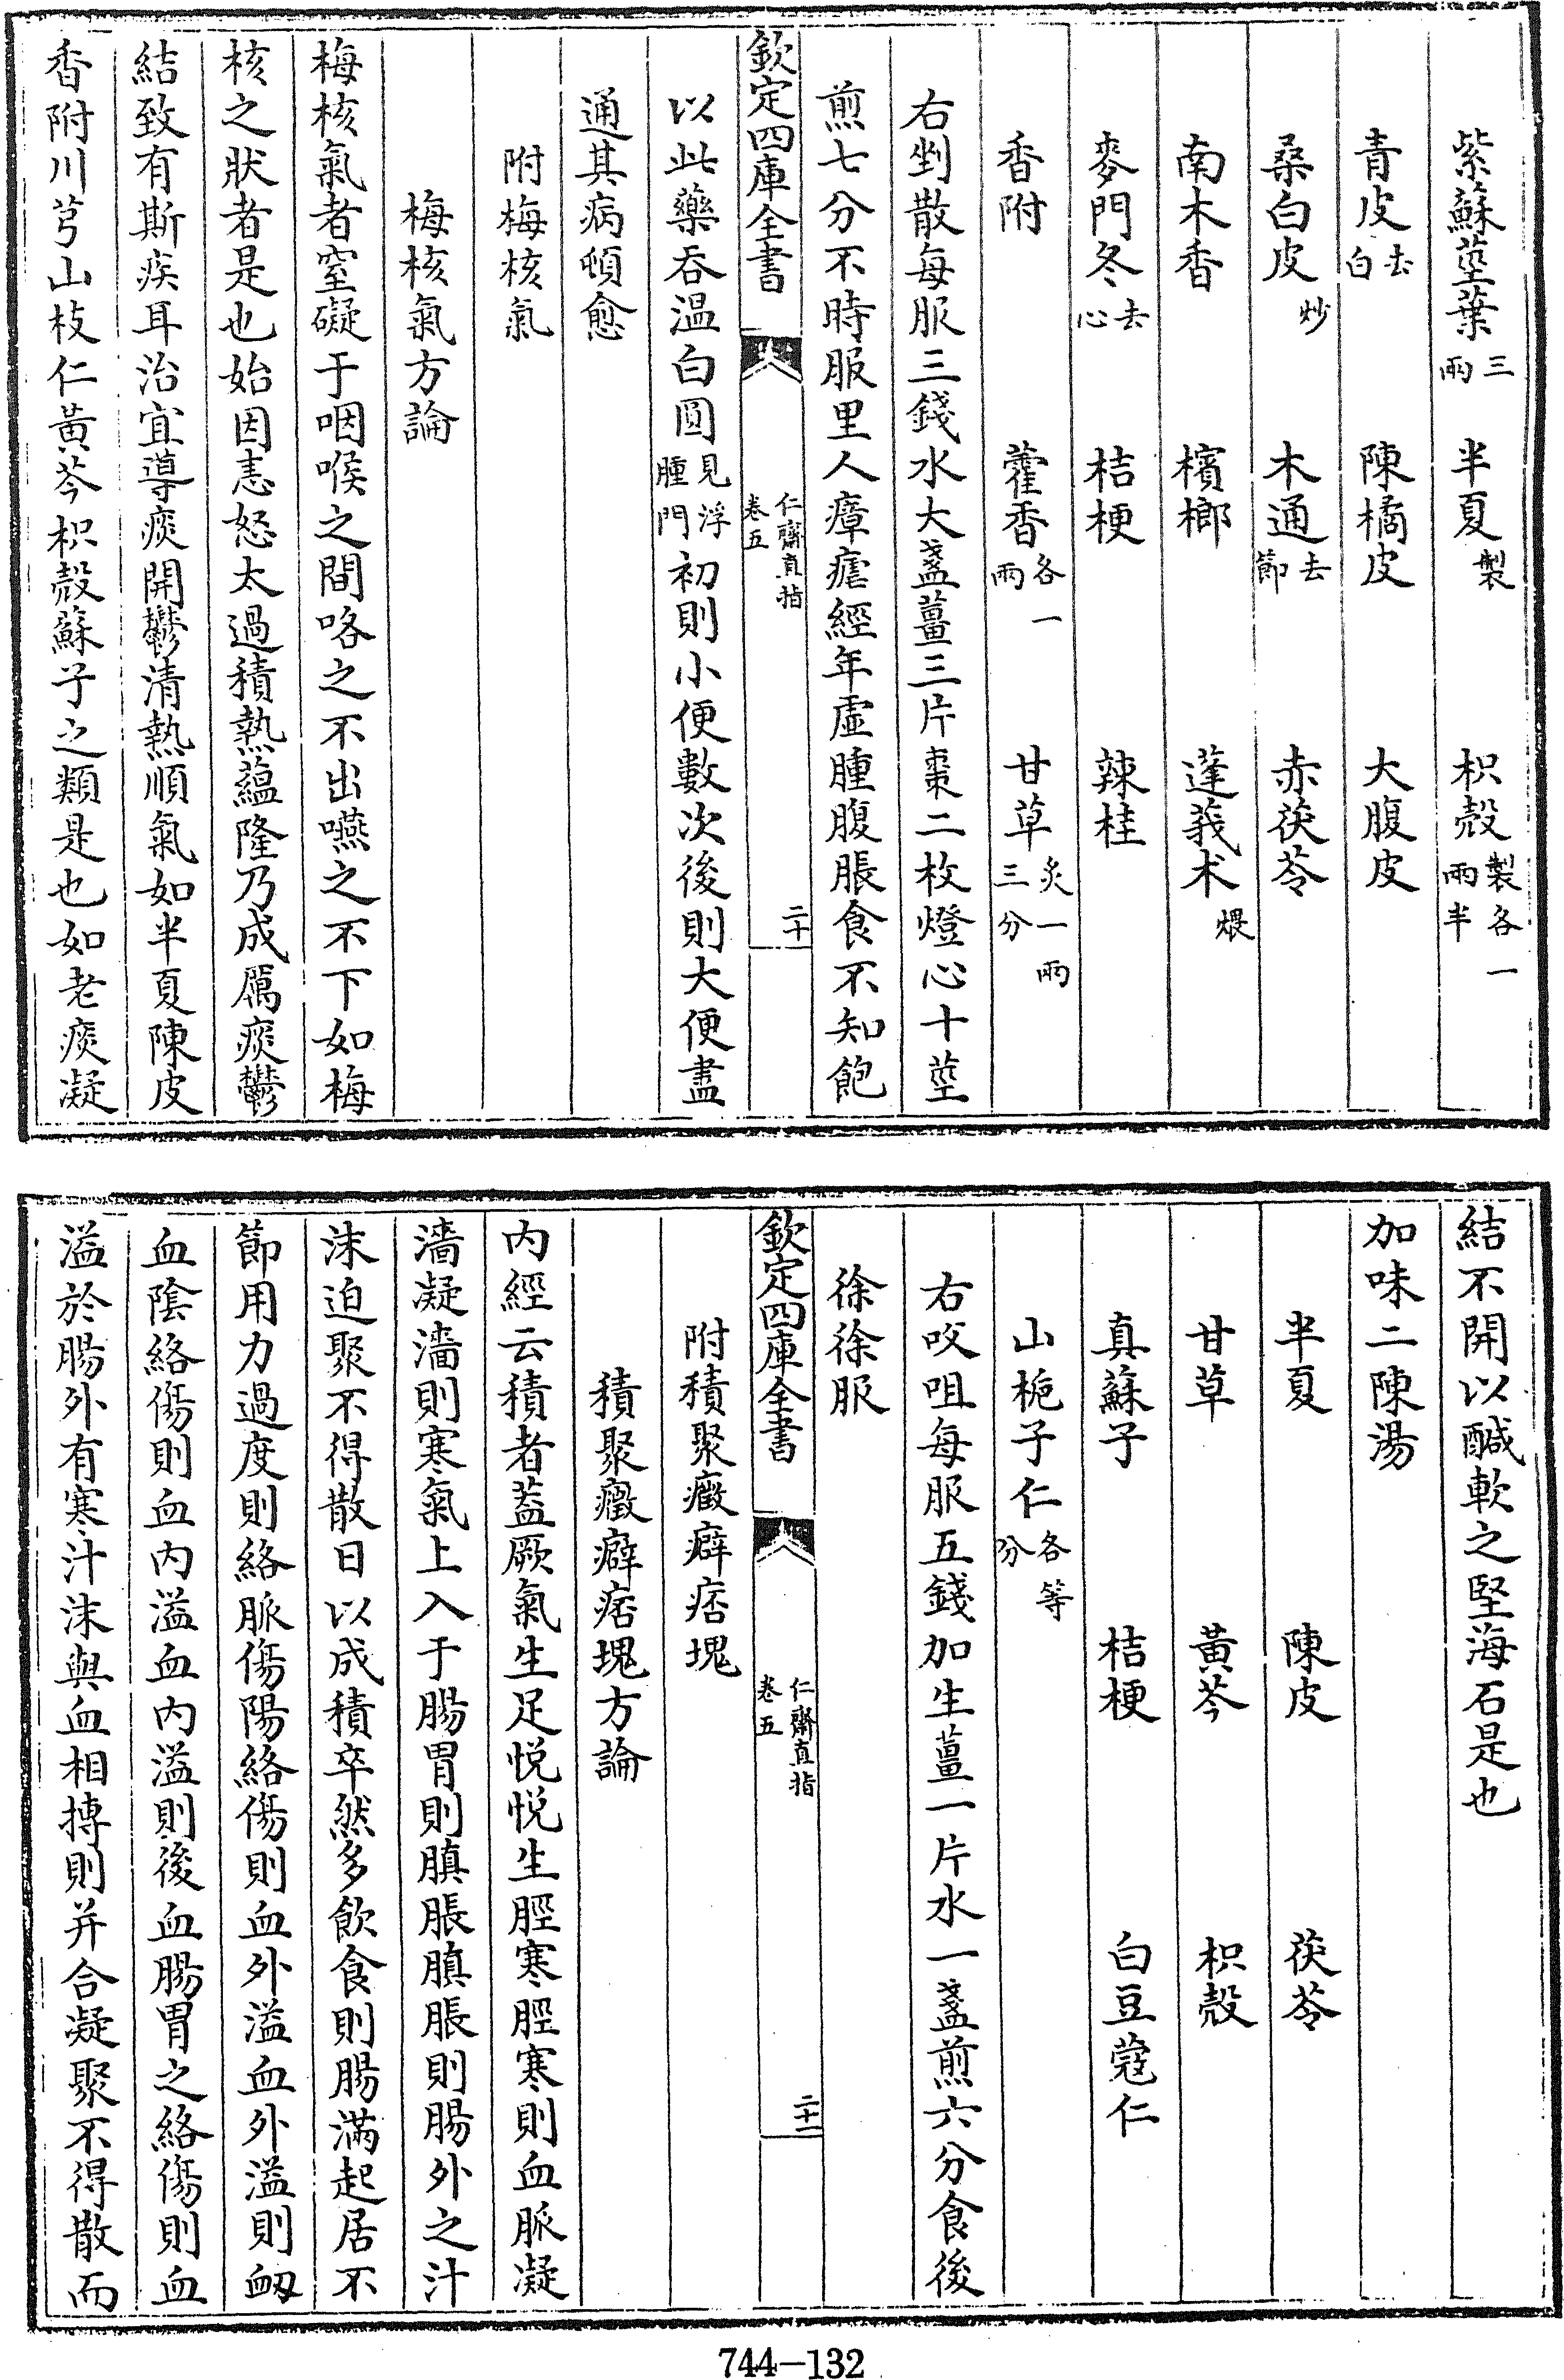 紫蘇莖葉三兩　半夏製　枳殼製各一兩半
青皮去白　陳橘皮　大腹皮
桑白皮炒　木通去節　赤茯苓
南木香　檳榔　蓬莪术煨
麥門冬去心　桔梗　辣桂
香附　藿香各一兩　甘草炙一兩三分
右剉散每服三錢水大盞薑三片棗二枚燈心十莖
煎七分不時服里人瘴瘧經年虛腫腹脹食不知飽
欽定四庫全書　仁齋直指卷五　二十
以此藥吞温白圓見浮腫門初則小便數次後則大便盡
通其病頓愈
附梅核氣
梅核氣方論
梅核氣者窒礙于咽喉之間咯之不出嚥之不下如梅
核之狀者是也始因恚怒太過積熱蘊隆乃成厲痰鬱
結致有斯疾耳治宜導痰開鬱清熱順氣如半夏陳皮
香附川芎山枝仁黃芩枳殼蘇子之類是也如老痰凝
結不開以鹹軟之堅海石是也
加味二陳湯
半夏　陳皮　茯苓
甘草　黃芩　枳殼
真蘇子　桔梗　白豆蔻仁
山梔子仁各等分
右㕮咀每服五錢加生薑一片水一盞煎六分食後
徐徐服
欽定四庫全書　仁齋直指卷五　二十一
附積聚癥癖痞塊
積聚癥癖痞塊方論
内經云積者蓋厥氣生足悗悗生脛寒脛寒則血脈凝
濇凝濇則寒氣上入于腸胃則䐜脹䐜脹則腸外之汁
沫迫聚不得散日以成積卒然多飲食則腸滿起居不
節用力過度則絡脈傷陽絡傷則血外溢血外溢則衂
血陰絡傷則血内溢血内溢則後血腸胃之絡傷則血
溢於腸外有寒汁沫與血相摶則并合凝聚不得散而
744-132